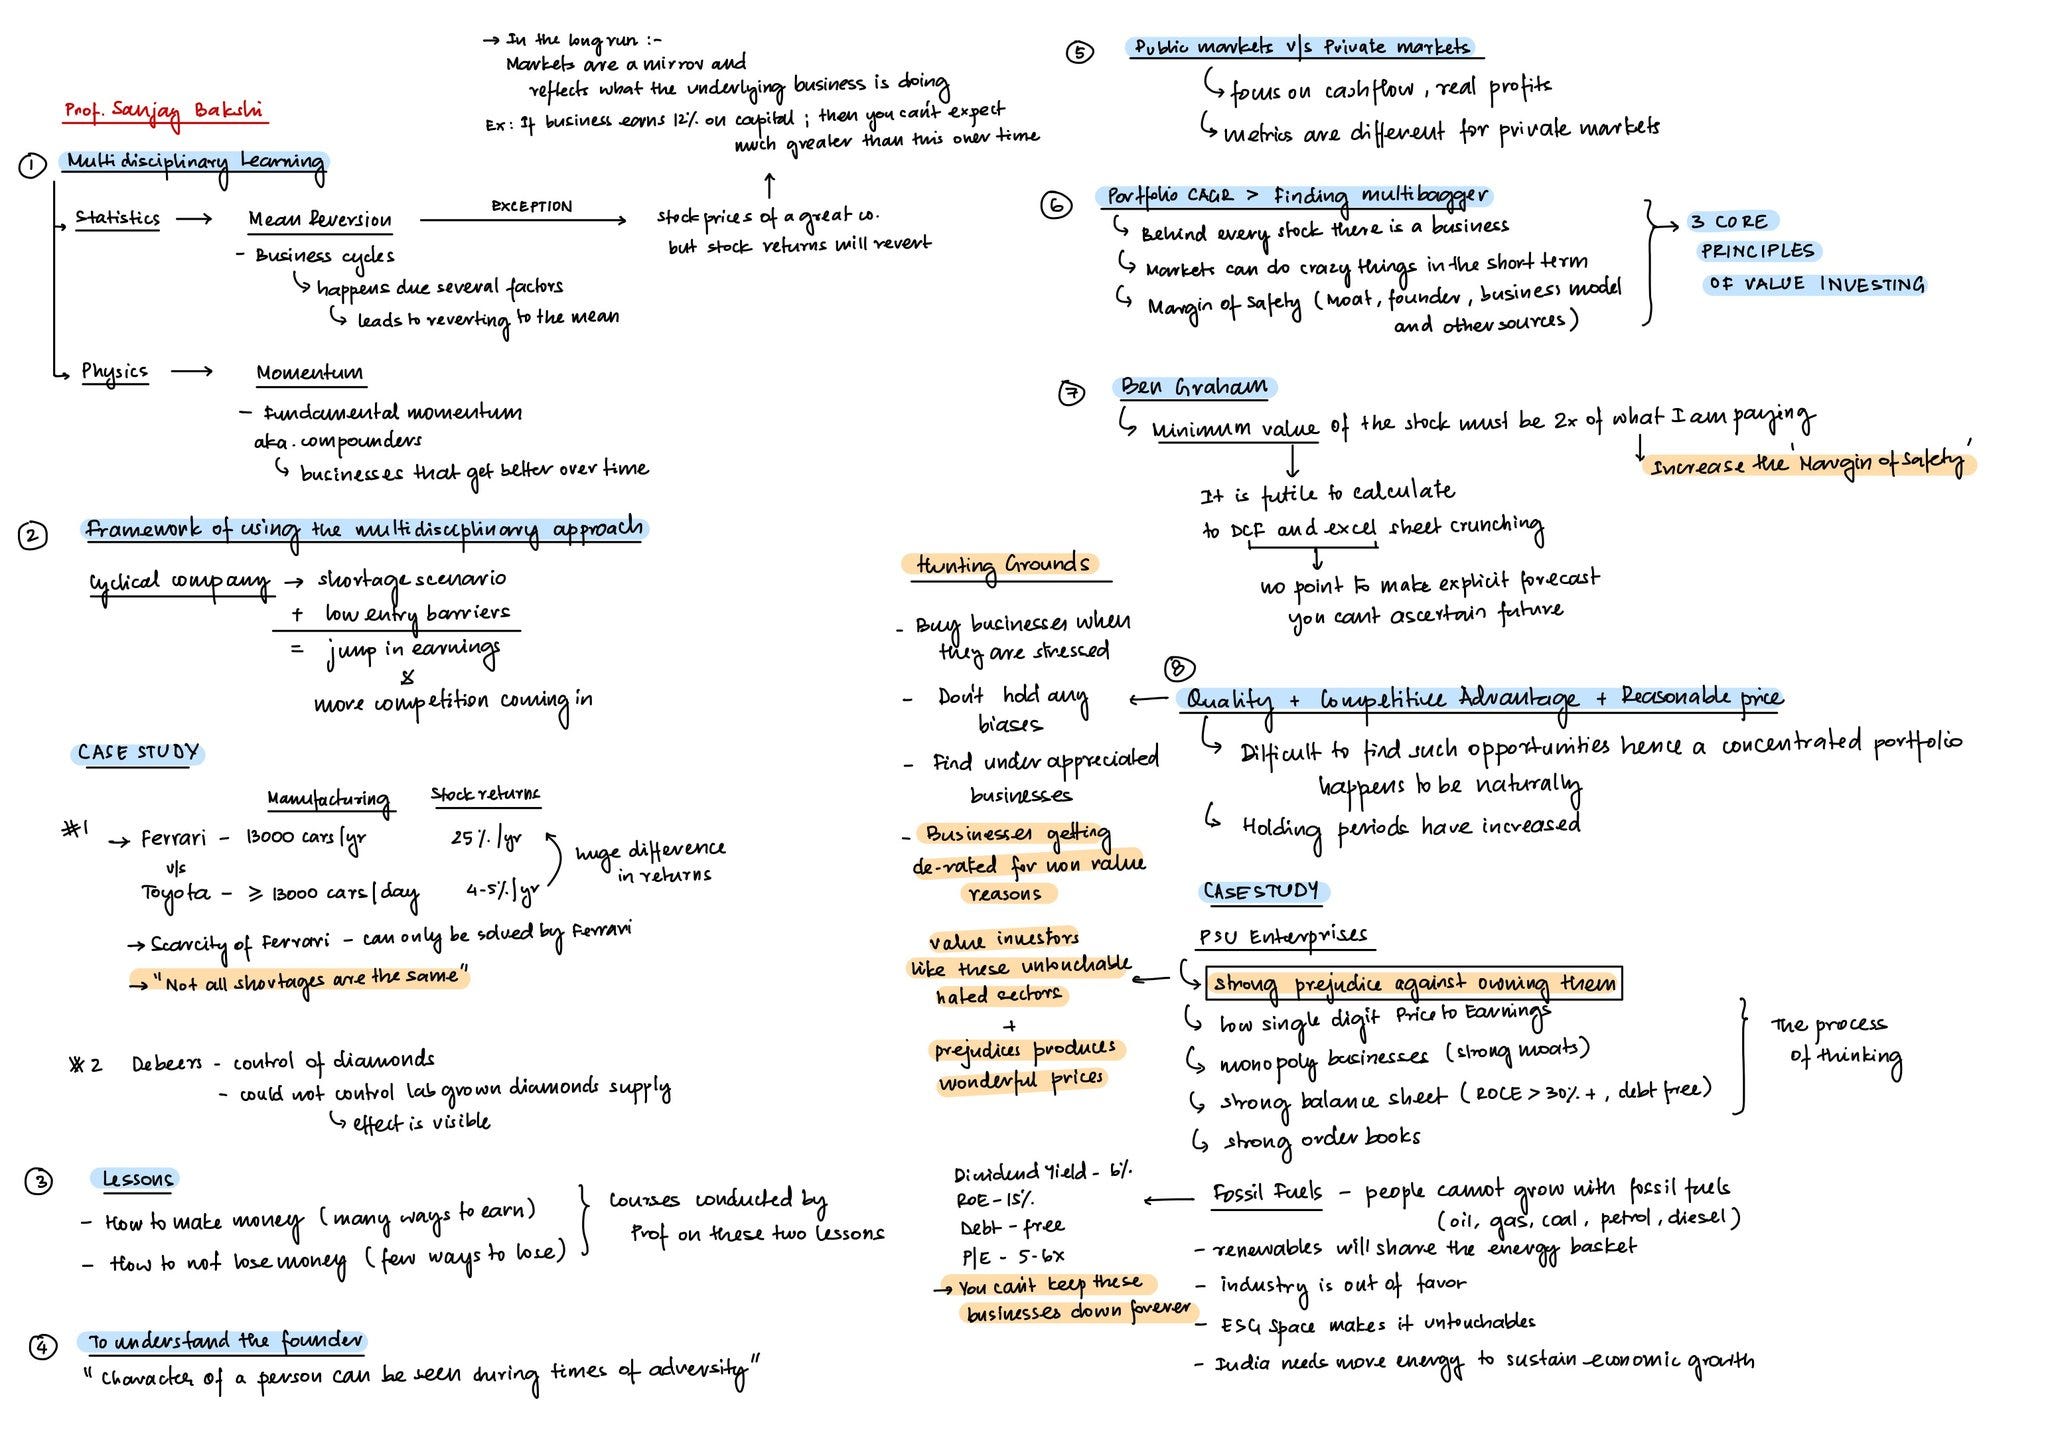 Prof. Sanjay Bakshi
① Multidisciplinary Learning
Statistics → Mean Reversion
EXCEPTION
- Business cycles
happens due several factors
leads to reverting to the mean
stock prices of a great co.
but stock returns will revert
→ In the long run :-
Markets are a mirror and
reflects what the underlying business is doing
Ex: If business earns 12% on capital ; then you can't expect
much greater than this over time
Physics → Momentum
- Fundamental momentum
aka. compounders
businesses that get better over time
② Framework of using the multidisciplinary approach
Cyclical company → shortage scenario
+ low entry barriers
= jump in earnings
&
more competition coming in
CASE STUDY
Manufacturing Stock returns
#1 → Ferrari - 13000 cars/yr 25%/yr
v/s
Toyota - ≥ 13000 cars/day 4-5%/yr
huge difference
in returns
→ Scarcity of Ferrari - can only be solved by Ferrari
→ "Not all shortages are the same"
#2 Debeers - control of diamonds
- could not control lab grown diamonds supply
effect is visible
③ Lessons
- How to make money (many ways to earn)
- How to not lose money (few ways to lose)
courses conducted by
Prof on these two lessons
④ To understand the founder
"Character of a person can be seen during times of adversity"
⑤ Public markets v/s Private markets
focus on cashflow, real profits
metrics are different for private markets
⑥ Portfolio CAGR > Finding multibagger
Behind every stock there is a business
Markets can do crazy things in the short term
Margin of Safety (Moat, founder, business model
and other sources)
3 CORE
PRINCIPLES
OF VALUE INVESTING
⑦ Ben Graham
Minimum value of the stock must be 2x of what I am paying
Increase the 'Margin of Safety'
It is futile to calculate
to DCF and excel sheet crunching
no point to make explicit forecast
you cant ascertain future
⑧
Quality + Competitive Advantage + Reasonable price
Difficult to find such opportunities hence a concentrated portfolio
happens to be naturally
Holding periods have increased
Hunting Grounds
- Buy businesses when
they are stressed
- Don't hold any
biases
- Find under appreciated
businesses
- Businesses getting
de-rated for non value
reasons
value investors
like these untouchable
hated sectors
+
prejudices produces
wonderful prices
CASESTUDY
PSU Enterprises
strong prejudice against owning them
low single digit Price to Earnings
monopoly businesses (strong moats)
strong balance sheet (ROCE > 30% +, debt free)
strong order books
The process
of thinking
Fossil Fuels - people cannot grow with fossil fuels
(oil, gas, coal, petrol, diesel)
- renewables will share the energy basket
- industry is out of favor
- ESG Space makes it untouchables
- India needs more energy to sustain economic growth
Dividend Yield - 6%
ROE - 15%
Debt - free
P/E - 5-6x
→ You can't keep these
businesses down forever